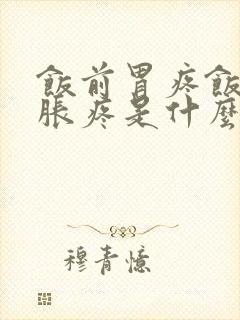 飯前胃疼飯
脹疼是什麼
穆青憶